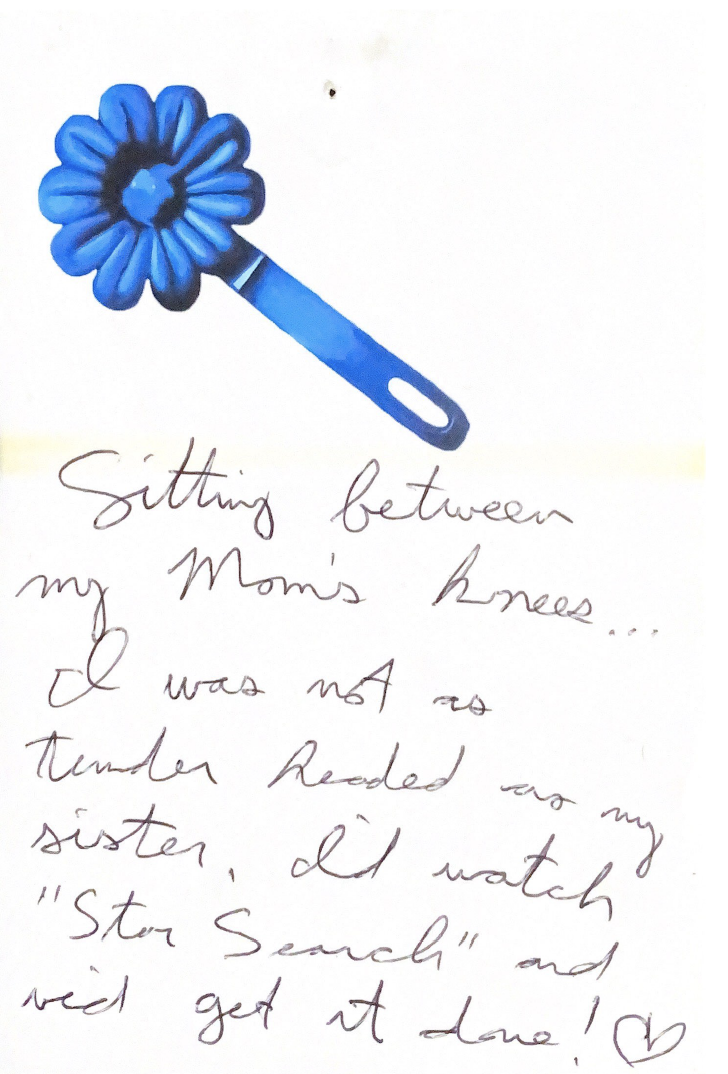 Sitting between
my Mom's knees...
I was not as
tender headed as my
sister. I'd watch
"Star Search" and
we'd get it done! ♡